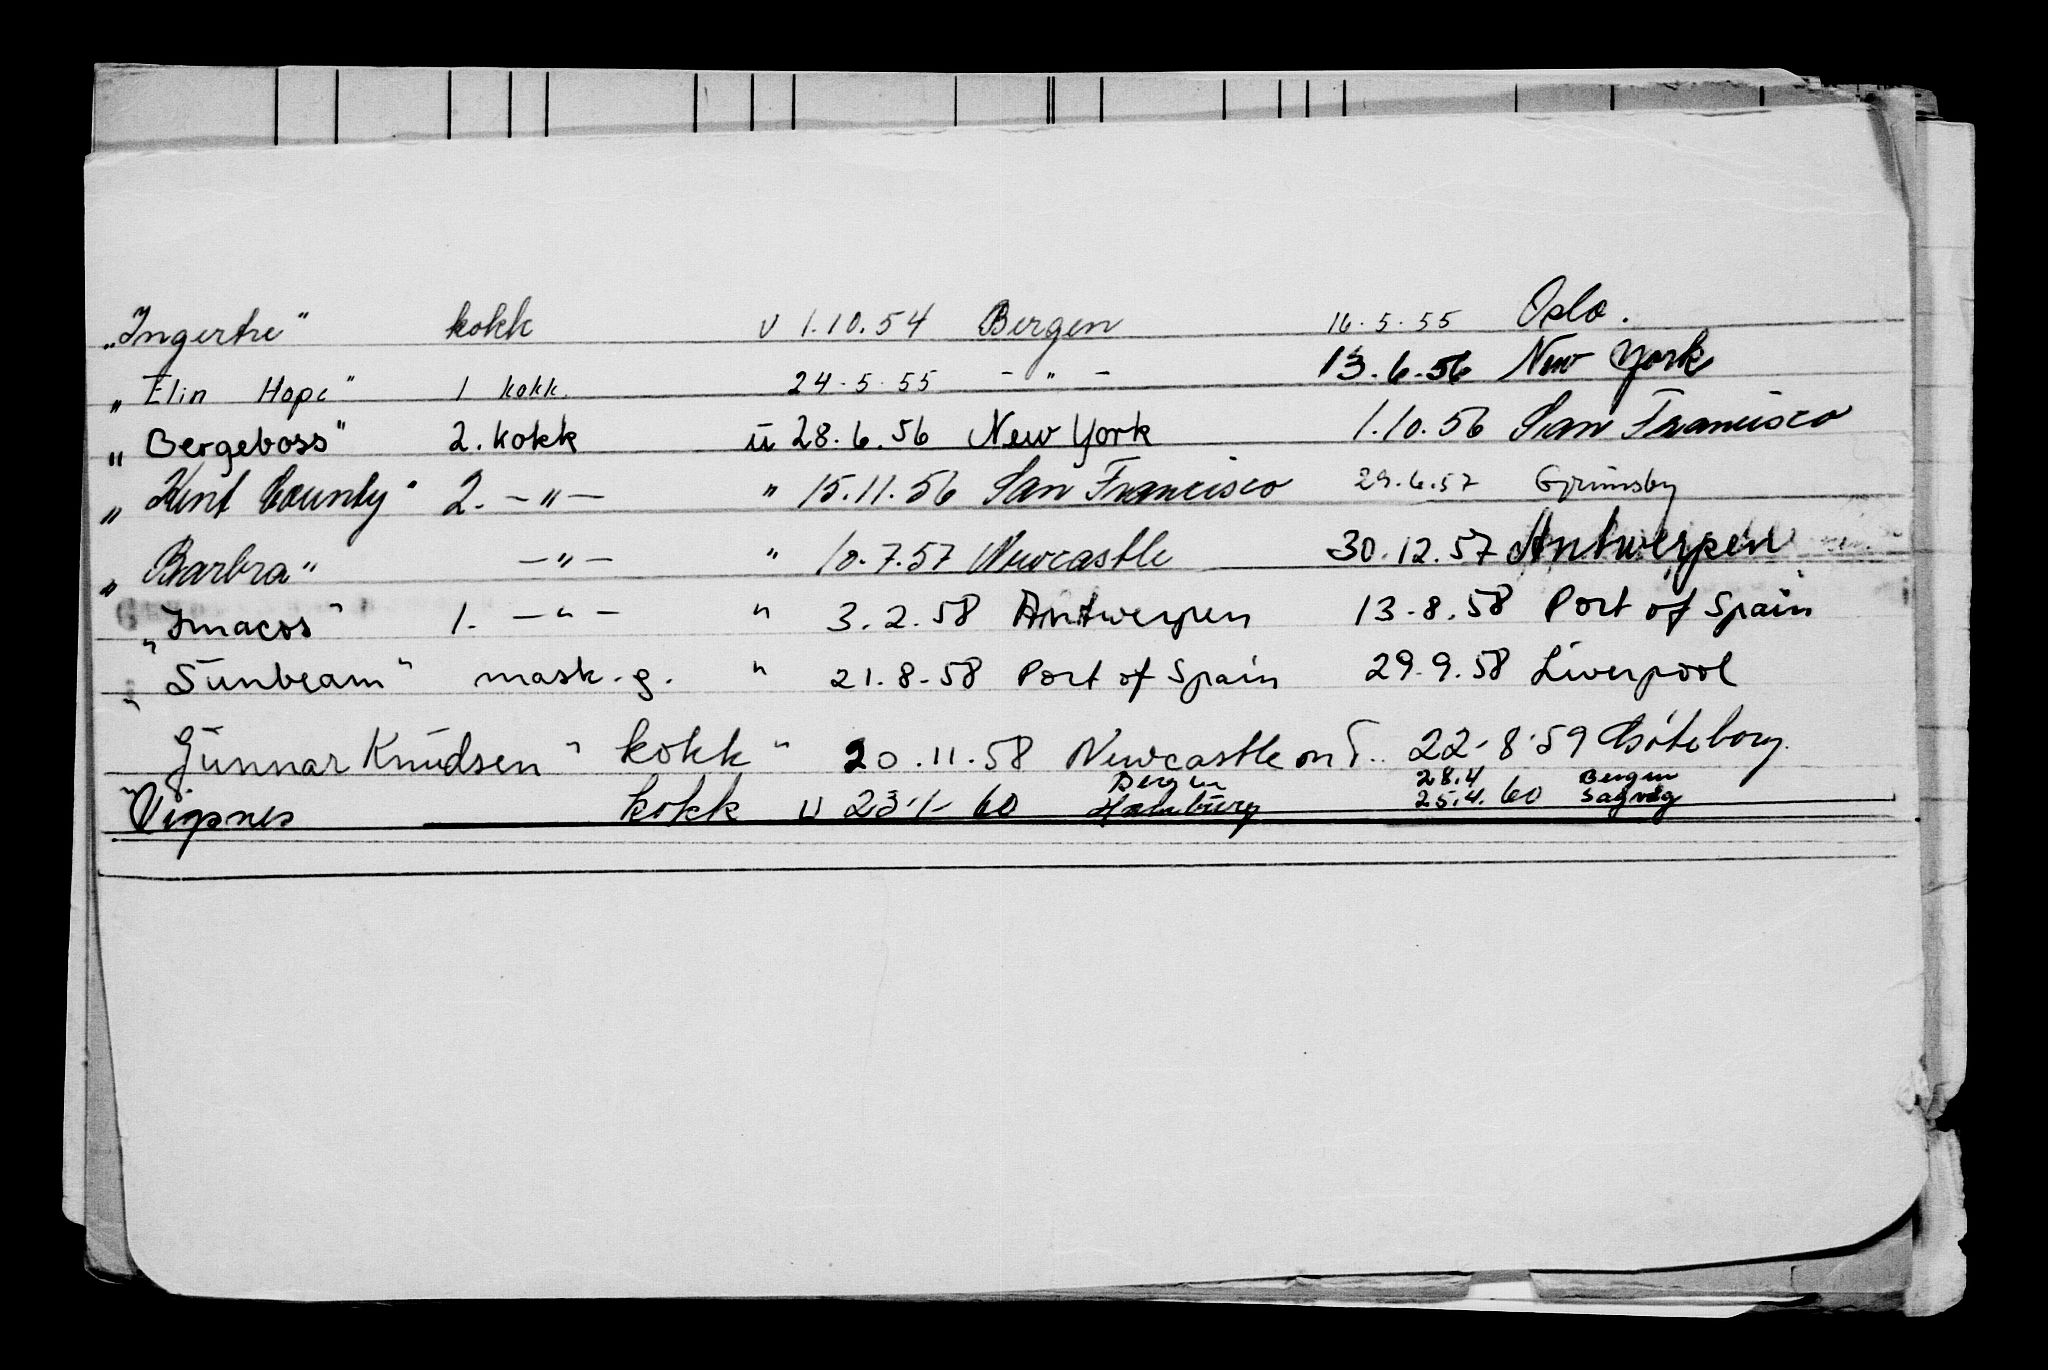 „Ingertre" kokk v 1.10.54 Bergen 16.5.55 Oslo.
„Elin Hope" 1 kokk. 24.5.55 - " - 13.6.56 New York
„Bergeboss" 2. kokk u 28.6.56 New York 1.10.56 San Francisco
„Kent County" 2. -"- " 15.11.56 San Francisco 29.6.57 Grimsby
„Barbra" -"- " 10.7.57 Newcastle 30.12.57 Antwerpen
„Imacos" 1. -"- " 3.2.58 Antwerpen 13.8.58 Port of Spain
„Sunbeam" mask.g. " 21.8.58 Port of Spain 29.9.58 Liverpool
Gunnar Knudsen" kokk " 20.11.58 Newcastle on T. 22-8-59 Göteborg.
Bergen 28.4 Bergen
"Vigsnes kokk u 23/1-60 Hamburg 25.4.60 Sagvåg